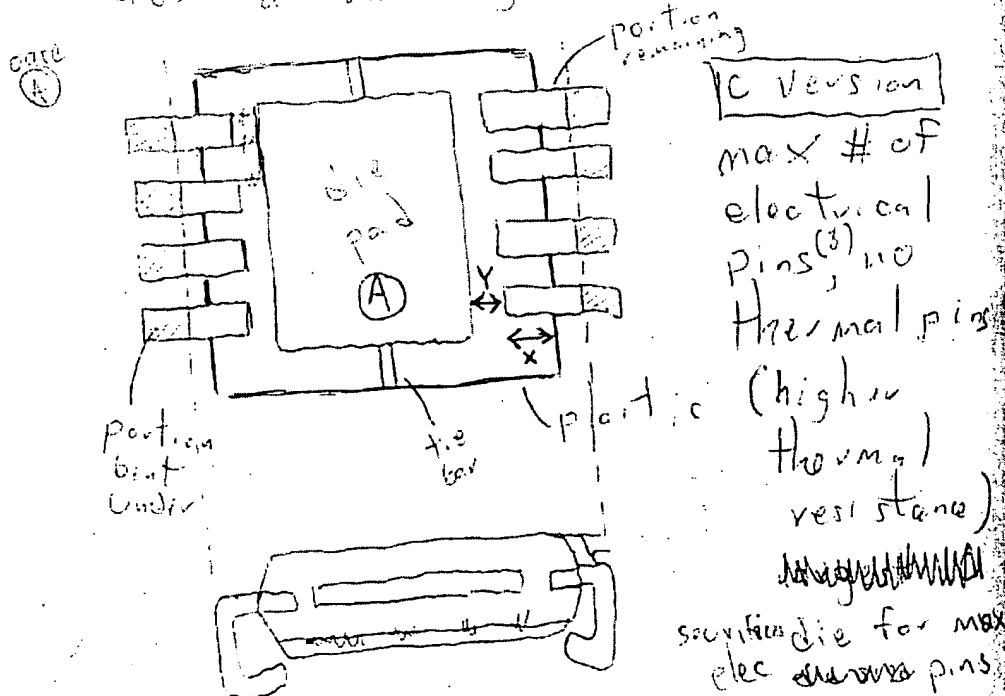 case
A
portion
remaining
die
pad
A
Y
X
portion
bent
under
tie
bar
plastic
IC Version
max # of
electrical
pins, no
thermal pins
(higher
thermal
resistance)
die for max
elec pins